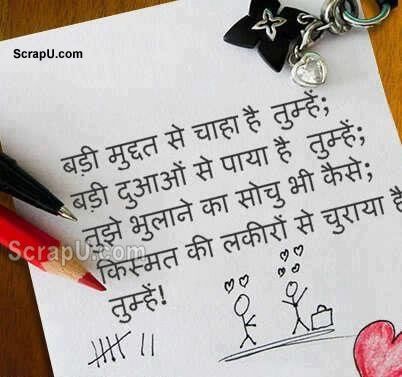 ScrapU.com
बड़ी मुद्दत से चाहा है तुम्हें;
बड़ी दुआओं से पाया है तुम्हें;
तुझे भुलाने का सोचु भी कैसे;
किस्मत की लकीरों से चुराया है
तुम्हें!
ScrapU.com